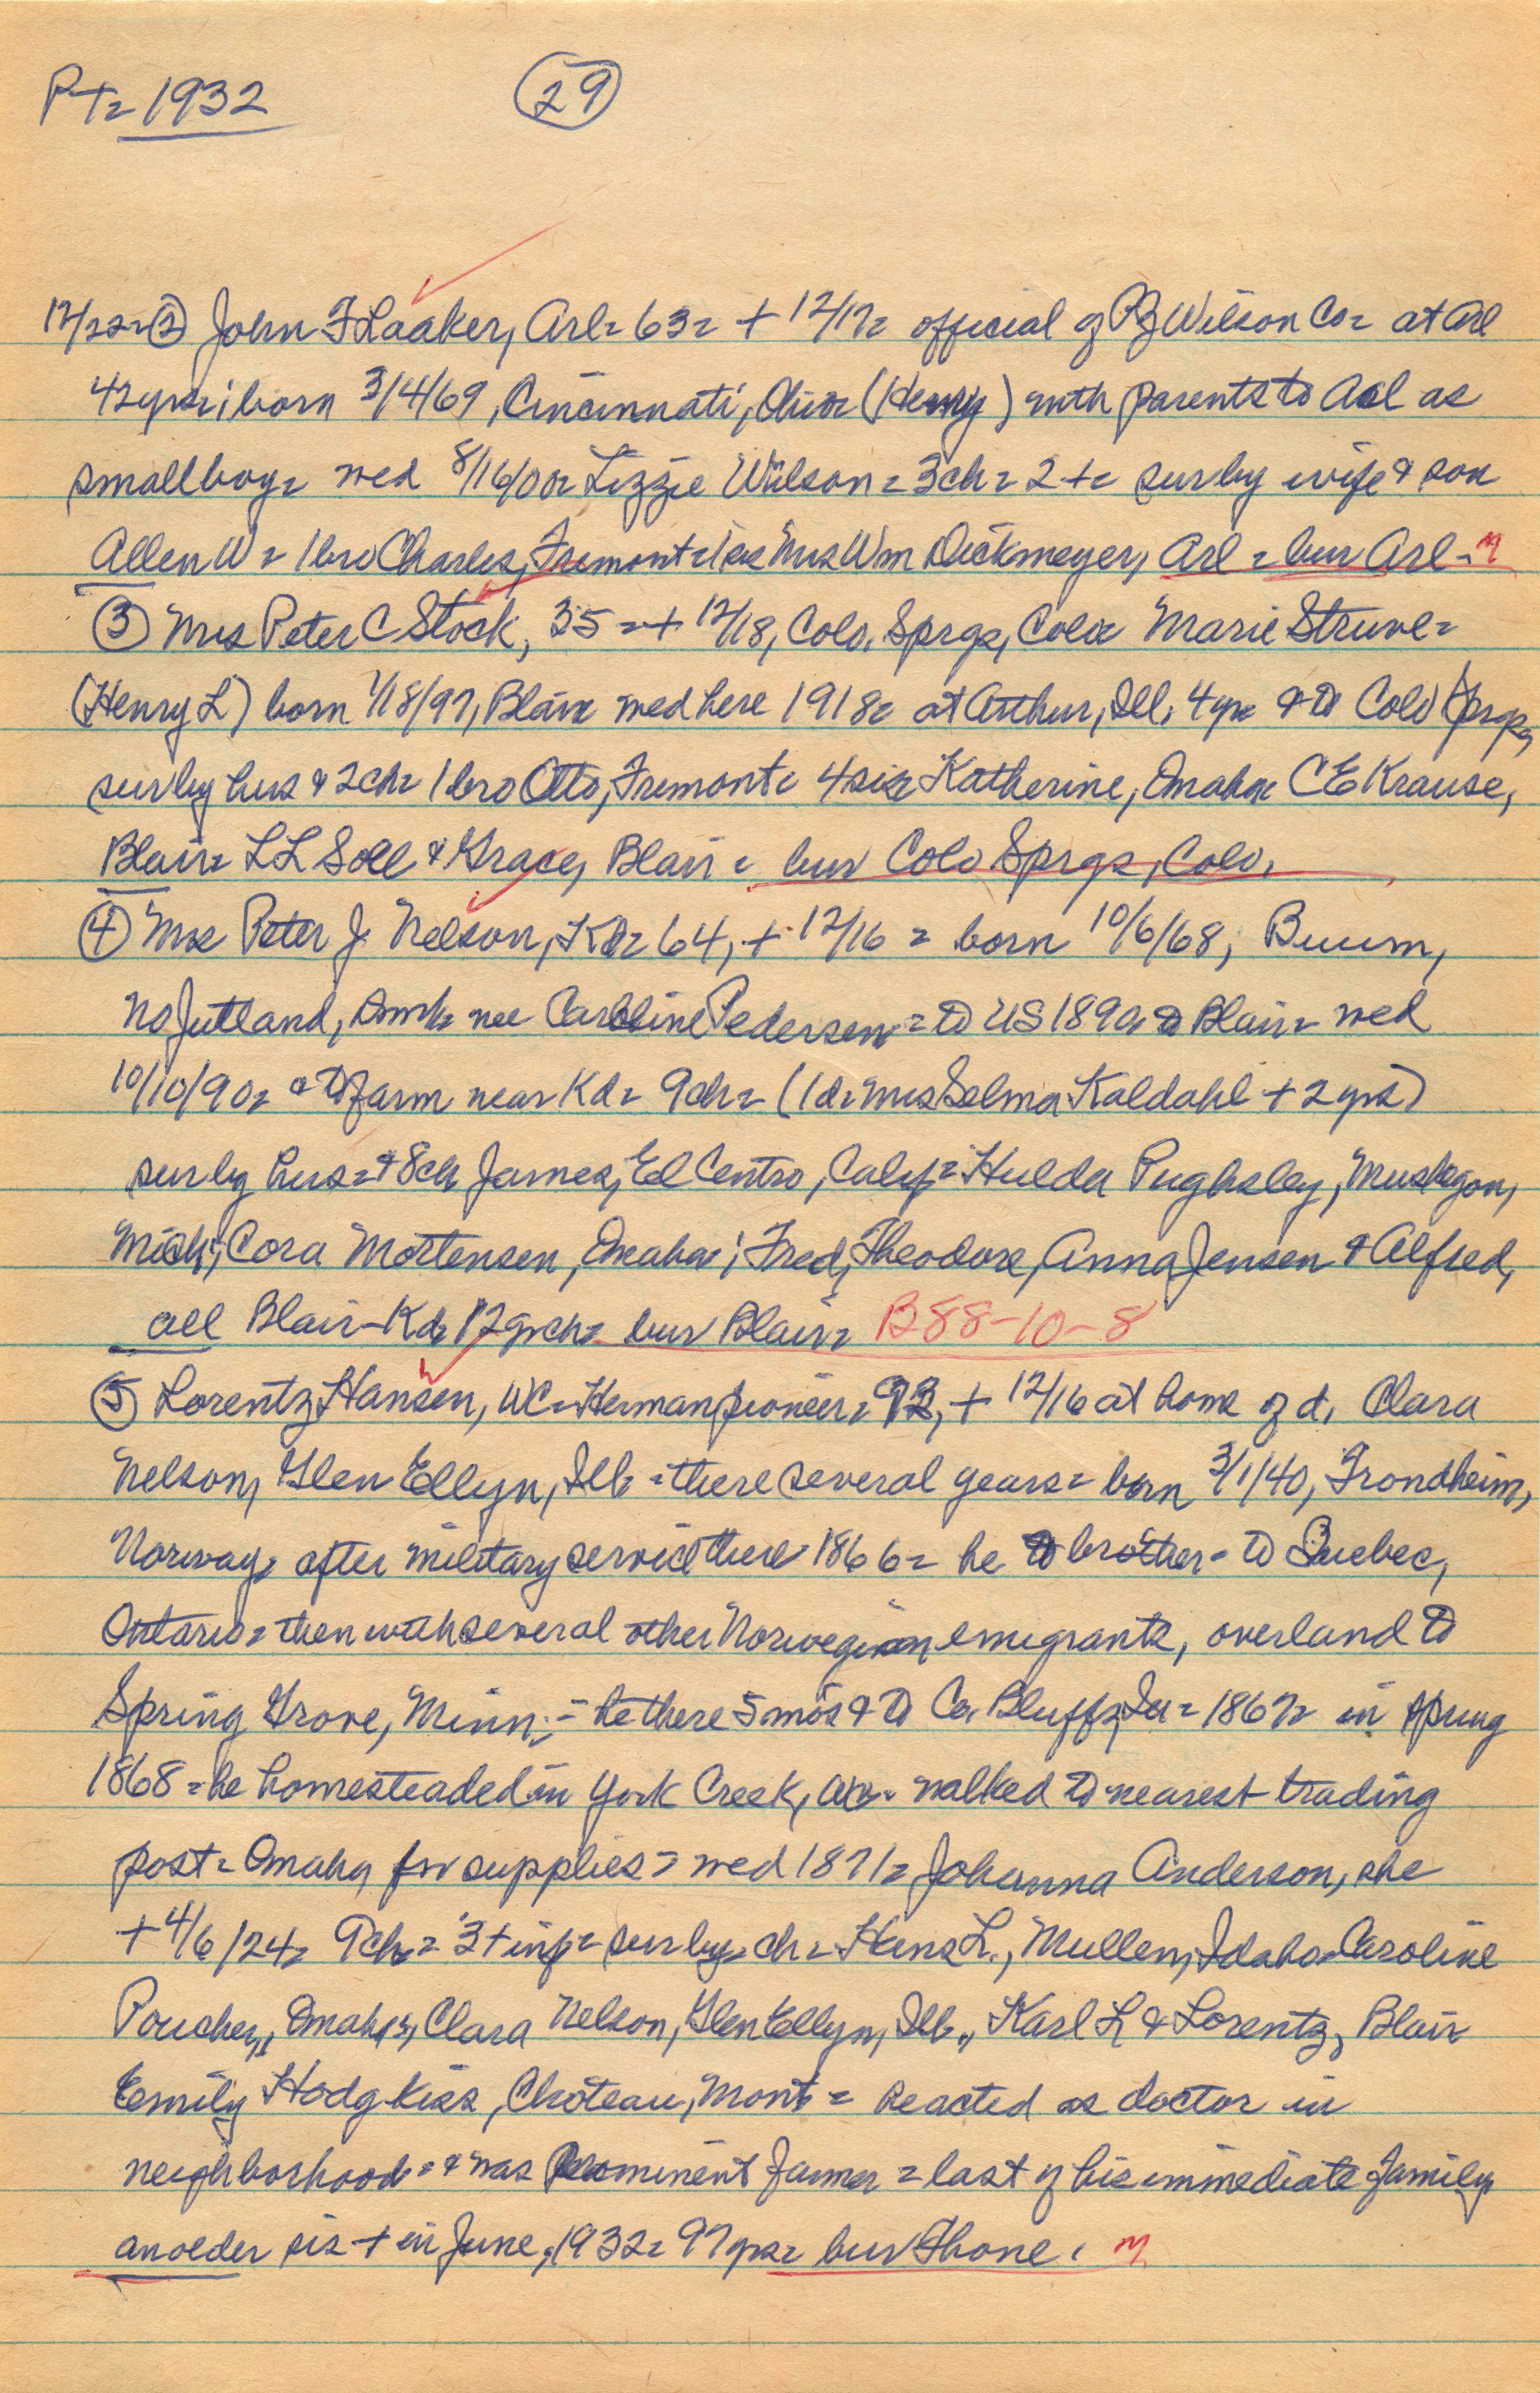 PT= 1932 (29)
12/22=(2) John F Laaker, Arl= 63= + 12/17= official of RJ Wilson Co= at Arl
42yrs= born 3/4/69, Cincinnati, Ohio= (Henry) with parents to Arl as
small boy= wed 8/16/00= Lizzie Wilson= 3ch= 2+= sur by wife & son
Allen W= 1 bro Charles, Fremont= 1 sis Mrs Wm Dickmeyer, Arl = bur Arl - M
(3) Mrs Peter C Stock, 35 = + 12/18, Colo. Sprgs, Colo= Marie Struve=
(Henry L) born 1/18/97, Blair= wed here 1918= at Arthur, Ill. 4yrs & to Colo Sprgs,
sur by hus & 2ch= 1 bro Otto, Fremont= 4 sis= Katherine, Omaha= C E Krause,
Blair= L L Soll & Grace, Blair = bur Colo Sprgs, Colo.
(4) Mrs Peter J. Nelson, Kd= 64, + 12/16 = born 10/6/68, Buum,
No Jutland, Dmk= nee Caroline Pedersen = to US 1890= to Blair= wed
10/10/90= & to farm near Kd= 9ch= (1 d= Mrs Selma Kaldahl + 2 yrs)
sur by hus= & 8ch James, El Centro, Calif= Hulda Pughsley, Muskegon,
Mich; Cora Mortensen, Omaha; Fred, Theodore, Anna Jensen & Alfred,
all Blair-Kd= 12 grch= bur Blair= B88-10-8
(5) Lorentz Hansen, WC= Herman pioneer, 92, + 12/16 at home of d. Clara
Nelson, Glen Ellyn, Ill= there several years= born 3/1/40, Trondheim,
Norway= after military service there 1866= he & brother- to Quebec,
Ontario= then with several other Norwegian emigrants, overland to
Spring Grove, Minn; - he there 5 mos & to Co. Bluffs, Ia = 1867= in spring
1868 = he homesteaded in York Creek, WC= walked to nearest trading
post= Omaha for supplies = wed 1871= Johanna Anderson, she
+ 4/6/24= 9ch= 3 + inf= sur by ch= Hans L., Mullen, Idaho= Caroline
Poucher, Omaha, Clara Nelson, Glen Ellyn, Ill., Karl L & Lorentz, Blair
Emily Hodgkiss, Choteau, Mont = he acted as doctor in
neighborhood= & was prominent farmer = last of his immediate family
an older sis + in June, 1932= 97 yrs= bur Thone. M